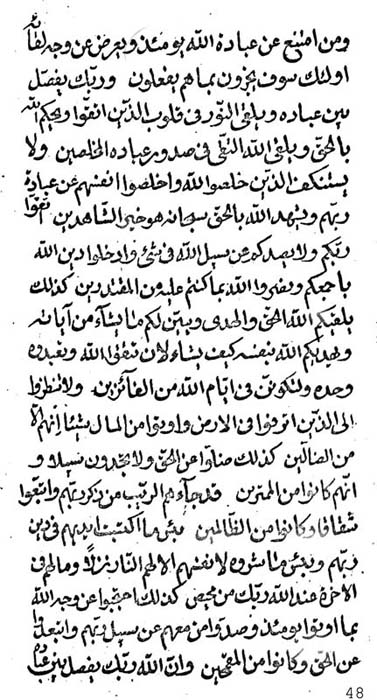 ومن امتنع عن عبادة الله يومئذ ويعرض عن وجه لقائه
اولئك سوف يجزون بما هم يفعلون وربك يفصل
بين عباده ويلقى النور فى قلوب الذين اتقوا ويحكم الله
بالحق ويلقى الله التقى فى صدور عباده المخلصين ولا
يستنكف الذين خلصوا لله واخلصوا انفسهم عن عبادة
ربهم ويشهد الله بالحق سبحانه هو خير الشاهدين اتقوا
ربكم ولا يصدكم عن سبيل الله فى شئ وادخلوا دين الله
باجمعكم وانصروا الله بما كنتم عليه من المقتدرين كذلك
يلقيكم الله الحق والهدى ويبين لكم ما يشاء من آياته
ويهديكم الله بنفسه كيف يشاء لان تتقوا الله وتعبدوه
وحده ولتكونن فى ايام الله من الفائزين ولا تنظروا
الى الذين اترفوا فى الارض واوتوا من المال شيئا انهم
من الضالين كذلك ضلوا عن الحق ولا يجدون سبيلا و
انهم كانوا من الممترين قد جاءهم الريب من ذكر ربهم واتبعوا
شقاقا وكانوا من الظالمين بئس ما اكتسبت ايديهم فى دين
ربهم وبئس ما شروه لانفسهم الا لهم النار نزلا وما لهم فى
الآخرة عند الله ربك من محيص كذلك احتجبوا عن وجه الله
بما اوتوا يومئذ وصدوا من معهم عن سبيل ربهم وابتعدوا
عن الحق وكانوا من وان الله ربك يفصل بين عباده
48